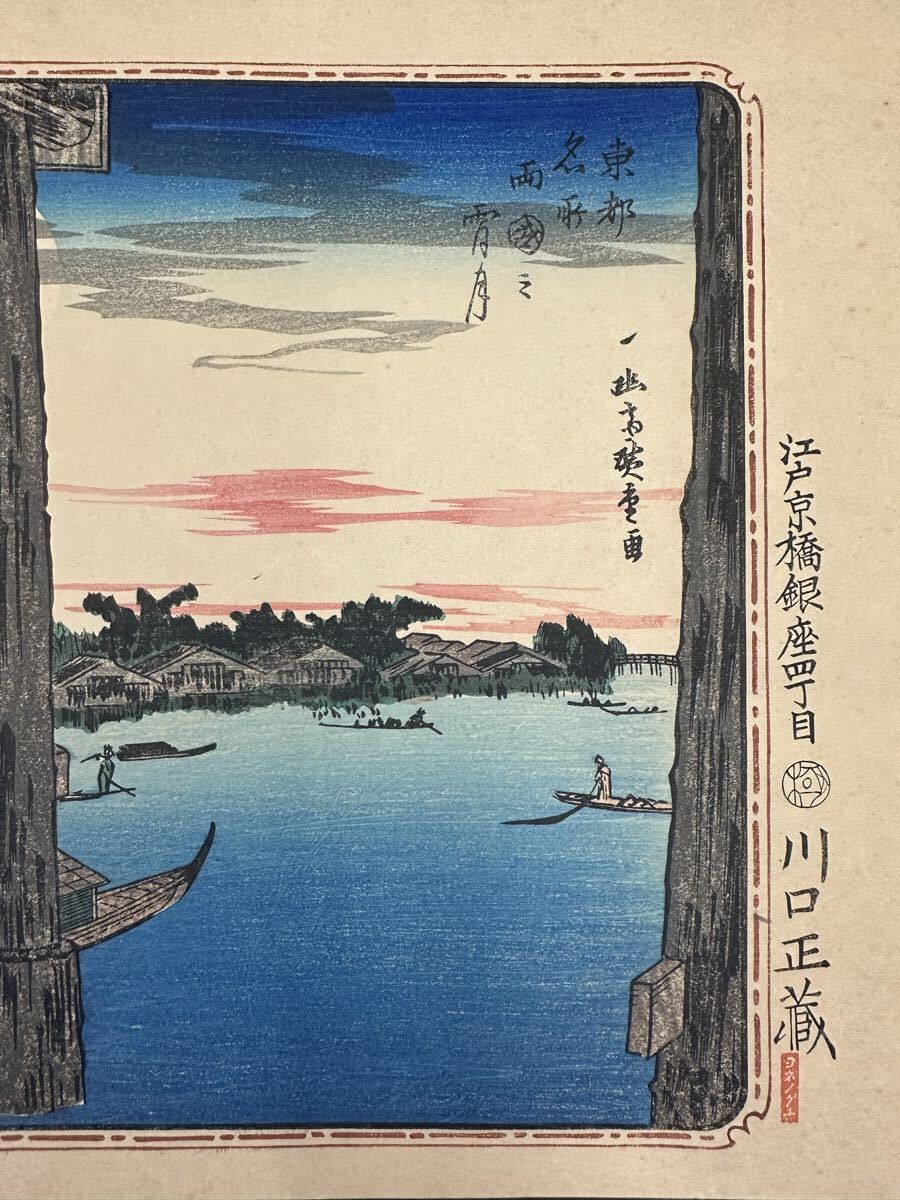 東都
名所
両國之
霄月
一幽斎廣重画
江戸京橋銀座四丁目
川口正藏